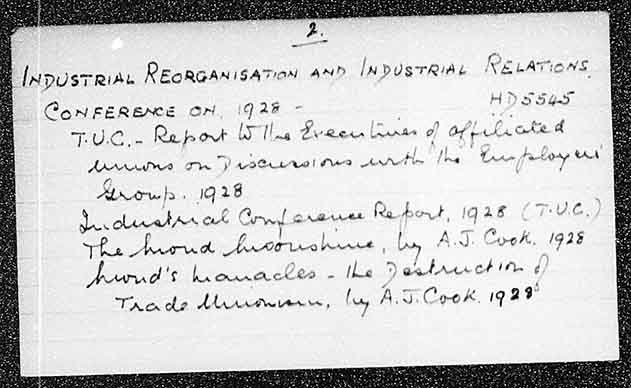 2.
INDUSTRIAL REORGANISATION AND INDUSTRIAL RELATIONS.
CONFERENCE ON, 1928 - HD5545
T.U.C. - Report to the Executives of affiliated
unions on Discussions with the Employers'
Group. 1928
Industrial Conference Report, 1928 (T.U.C.)
The Mond Moonshine, by A.J. Cook. 1928
Mond's Manacles - the Destruction of
Trade Unionism, by A.J. Cook. 1928